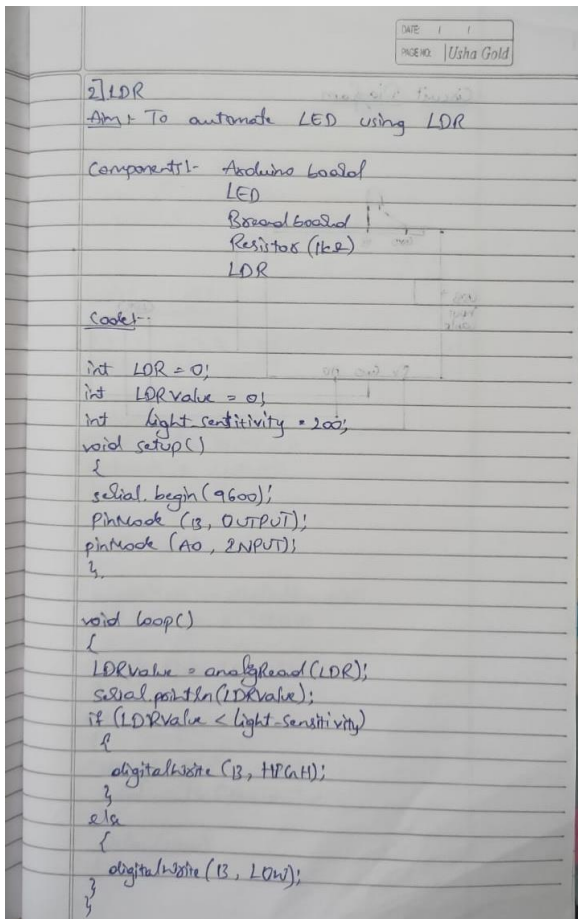 DATE / /
PAGE NO. Usha Gold
2] LDR
Aim :- To automate LED using LDR
Components :- Arduino board
LED
Bread board
Resistor (1kΩ)
LDR
Code :-
int LDR = 0;
int LDRvalue = 0;
int light_sentitivity = 200;
void setup()
{
serial.begin(9600);
PinMode (13, OUTPUT);
pinMode (A0, INPUT);
}
void loop()
{
LDRvalue = analogRead(LDR);
serial.println(LDRvalue);
if (LDRvalue < light-sensitivity)
{
digitalWrite (13, HIGH);
}
else
{
digitalWrite (13, LOW);
}
}